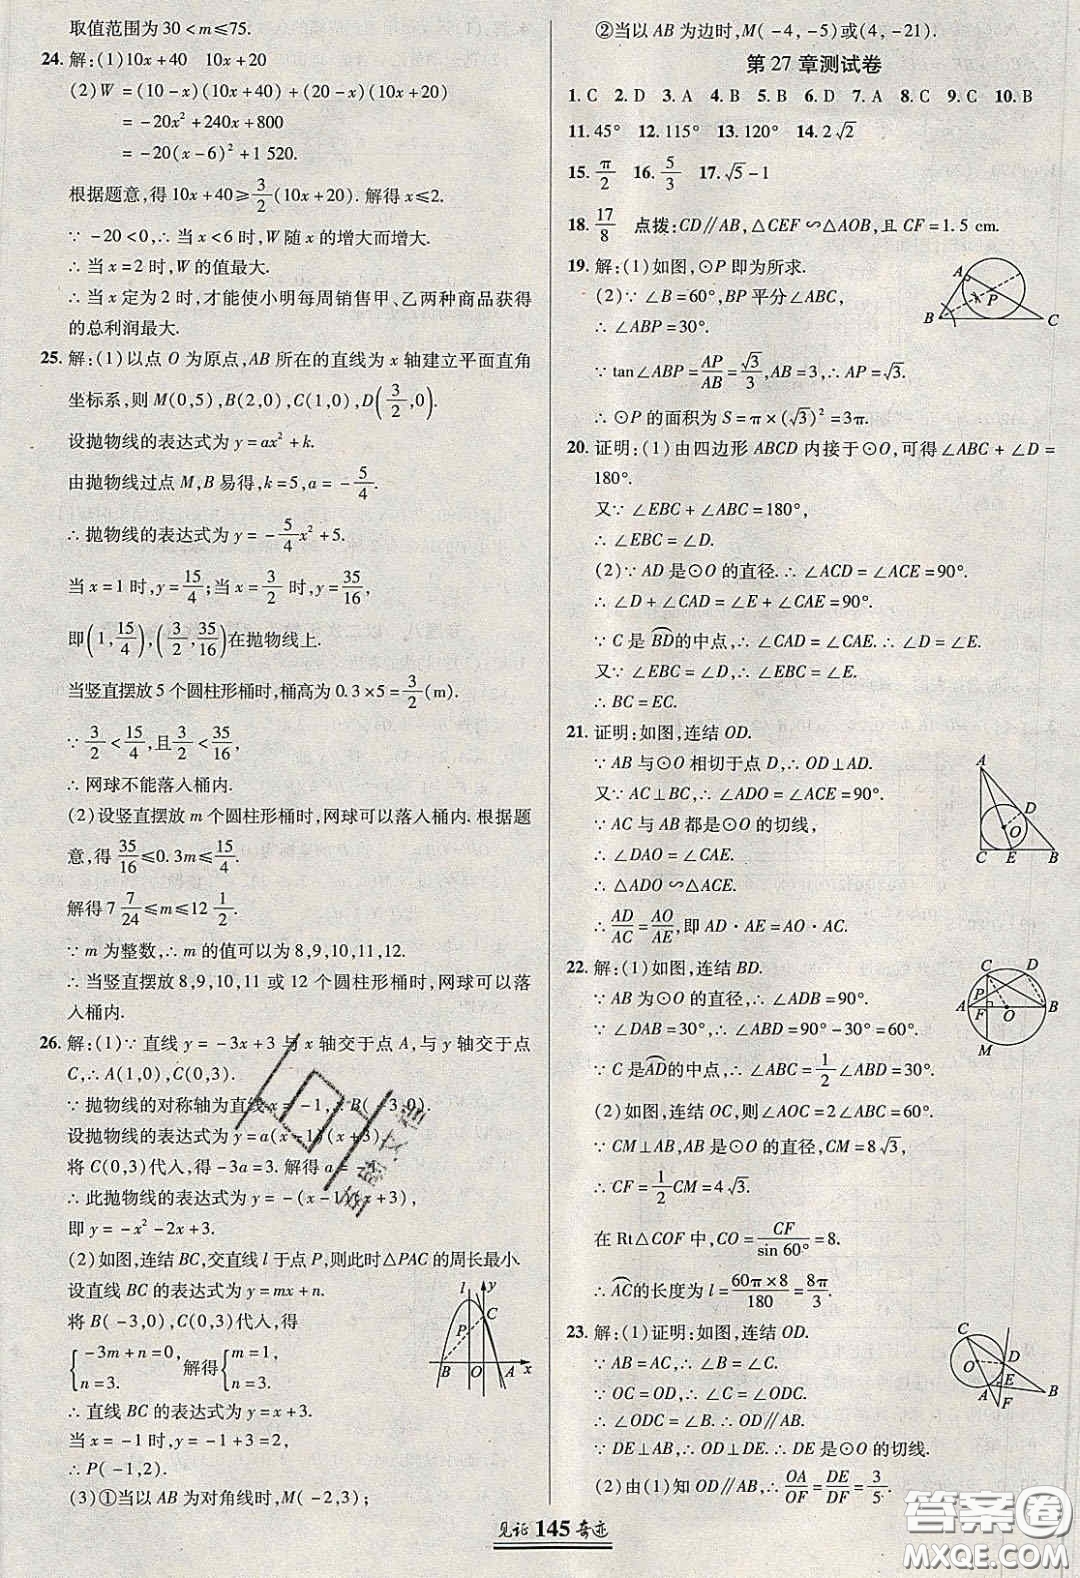 取值范围为 30＜m≤75.
24. 解:(1)10x+40　10x+20
(2)W =(10-x)(10x+40)+(20-x)(10x+20)
= -20x²+240x+800
= -20(x-6)²+1 520.
根据题意,得 10x+40≥3/2(10x+20). 解得 x≤2.
∵ -20<0,∴ 当 x<6 时,W 随 x 的增大而增大.
∴ 当 x=2 时,W 的值最大.
∴ 当 x 定为 2 时,才能使小明每周销售甲、乙两种商品获得
的总利润最大.
25. 解:(1)以点 O 为原点,AB 所在的直线为 x 轴建立平面直角
坐标系,则 M(0,5),B(2,0),C(1,0),D(3/2,0).
设抛物线的表达式为 y=ax²+k.
由抛物线过点 M,B 易得,k=5,a=-5/4.
∴ 抛物线的表达式为 y=-5/4x²+5.
当 x=1 时,y=15/4;当 x=3/2 时,y=35/16,
即(1,15/4),(3/2,35/16)在抛物线上.
当竖直摆放 5 个圆柱形桶时,桶高为 0.3×5=3/2(m).
∵ 3/2<15/4,且3/2<35/16,
∴ 网球不能落入桶内.
(2)设竖直摆放 m 个圆柱形桶时,网球可以落入桶内. 根据题
意,得 35/16≤0.3m≤15/4.
解得 7 7/24≤m≤12 1/2.
∵ m 为整数,∴ m 的值可以为 8,9,10,11,12.
∴ 当竖直摆放 8,9,10,11 或 12 个圆柱形桶时,网球可以落
入桶内.
26. 解:(1)∵ 直线 y=-3x+3 与 x 轴交于点 A,与 y 轴交于点
C,∴ A(1,0),C(0,3).
∵ 抛物线的对称轴为直线 x=-1,∴ B(-3,0).
设抛物线的表达式为 y=a(x-1)(x+3),
将 C(0,3)代入,得 -3a=3. 解得 a=-1.
∴ 此抛物线的表达式为 y=-(x-1)(x+3),
即 y=-x²-2x+3.
(2)如图,连结 BC,交直线 l 于点 P,则此时△PAC 的周长最小.
设直线 BC 的表达式为 y=mx+n.
将 B(-3,0),C(0,3)代入,得
{-3m+n=0, n=3. 解得{m=1, n=3.
∴ 直线 BC 的表达式为 y=x+3.
当 x=-1 时,y=2,
∴ P(-1,2).
(3)①当以 AB 为对角线时,M(-2,3);
l y C P B O A x
②当以 AB 为边时,M(-4,-5)或(4,-21).
第 27 章测试卷
1. C　2. D　3. A　4. B　5. B　6. D　7. A　8. C　9. C　10. B
11. 45°　12. 115°　13. 120°　14. 2√2
15. π/2　16. 5/3　17. √5-1
18. 17/8　点拨:CD∥AB,△CEF∽△AOB,且 CF=1.5 cm.
19. 解:(1)如图,⊙P 即为所求.
(2)∵ ∠B=60°,BP 平分∠ABC,
∴ ∠ABP=30°.
∵ tan∠ABP=AP/AB=√3/3,AB=3,∴ AP=√3.
∴ ⊙P 的面积为 S=π×(√3)²=3π.
A P B C
20. 证明:(1)由四边形 ABCD 内接于⊙O,可得∠ABC+∠D=
180°.
又∵ ∠EBC+∠ABC=180°,
∴ ∠EBC=∠D.
(2)∵ AD 是⊙O 的直径.∴ ∠ACD=∠ACE=90°.
∴ ∠D+∠CAD=∠E+∠CAE=90°.
∵ C 是 BD⌒的中点,∴ ∠CAD=∠CAE.∴ ∠D=∠E.
又∵ ∠EBC=∠D,∴ ∠EBC=∠E.
∴ BC=EC.
21. 证明:如图,连结 OD.
∵ AB 与⊙O 相切于点 D,∴ OD⊥AD.
又∵ AC⊥BC,∴ ∠ADO=∠ACE=90°.
∵ AC 与 AB 都是⊙O 的切线,
∴ ∠DAO=∠CAE.
∴ △ADO∽△ACE.
∴ AD/AC=AO/AE,即 AD·AE=AO·AC.
A D O C E B
22. 解:(1)如图,连结 BD.
∵ AB 为⊙O 的直径,∴ ∠ADB=90°.
∵ ∠DAB=30°,∴ ∠ABD=90°-30°=60°.
∵ C 是AD⌒的中点,∴ ∠ABC=1/2∠ABD=30°.
(2)如图,连结 OC,则∠AOC=2∠ABC=60°.
∵ CM⊥AB,AB 是⊙O 的直径,CM=8√3,
∴ CF=1/2CM=4√3.
在 Rt△COF 中,CO=CF/sin 60°=8.
∴ AC⌒的长度为 l=60π×8/180=8π/3.
C D P A F O B M
23. 解:(1)证明:如图,连结 OD.
∵ AB=AC,∴ ∠B=∠C.
∵ OC=OD,∴ ∠C=∠ODC.
∴ ∠ODC=∠B.∴ OD∥AB.
∵ DE⊥AB,∴ OD⊥DE.∴ DE 是⊙O 的切线.
(2)由(1)知 OD∥AB,∴ OA/OF=DE/DF=3/5.
C O D E A F B
见证 145 奇迹
答案圈
MXQE.COM